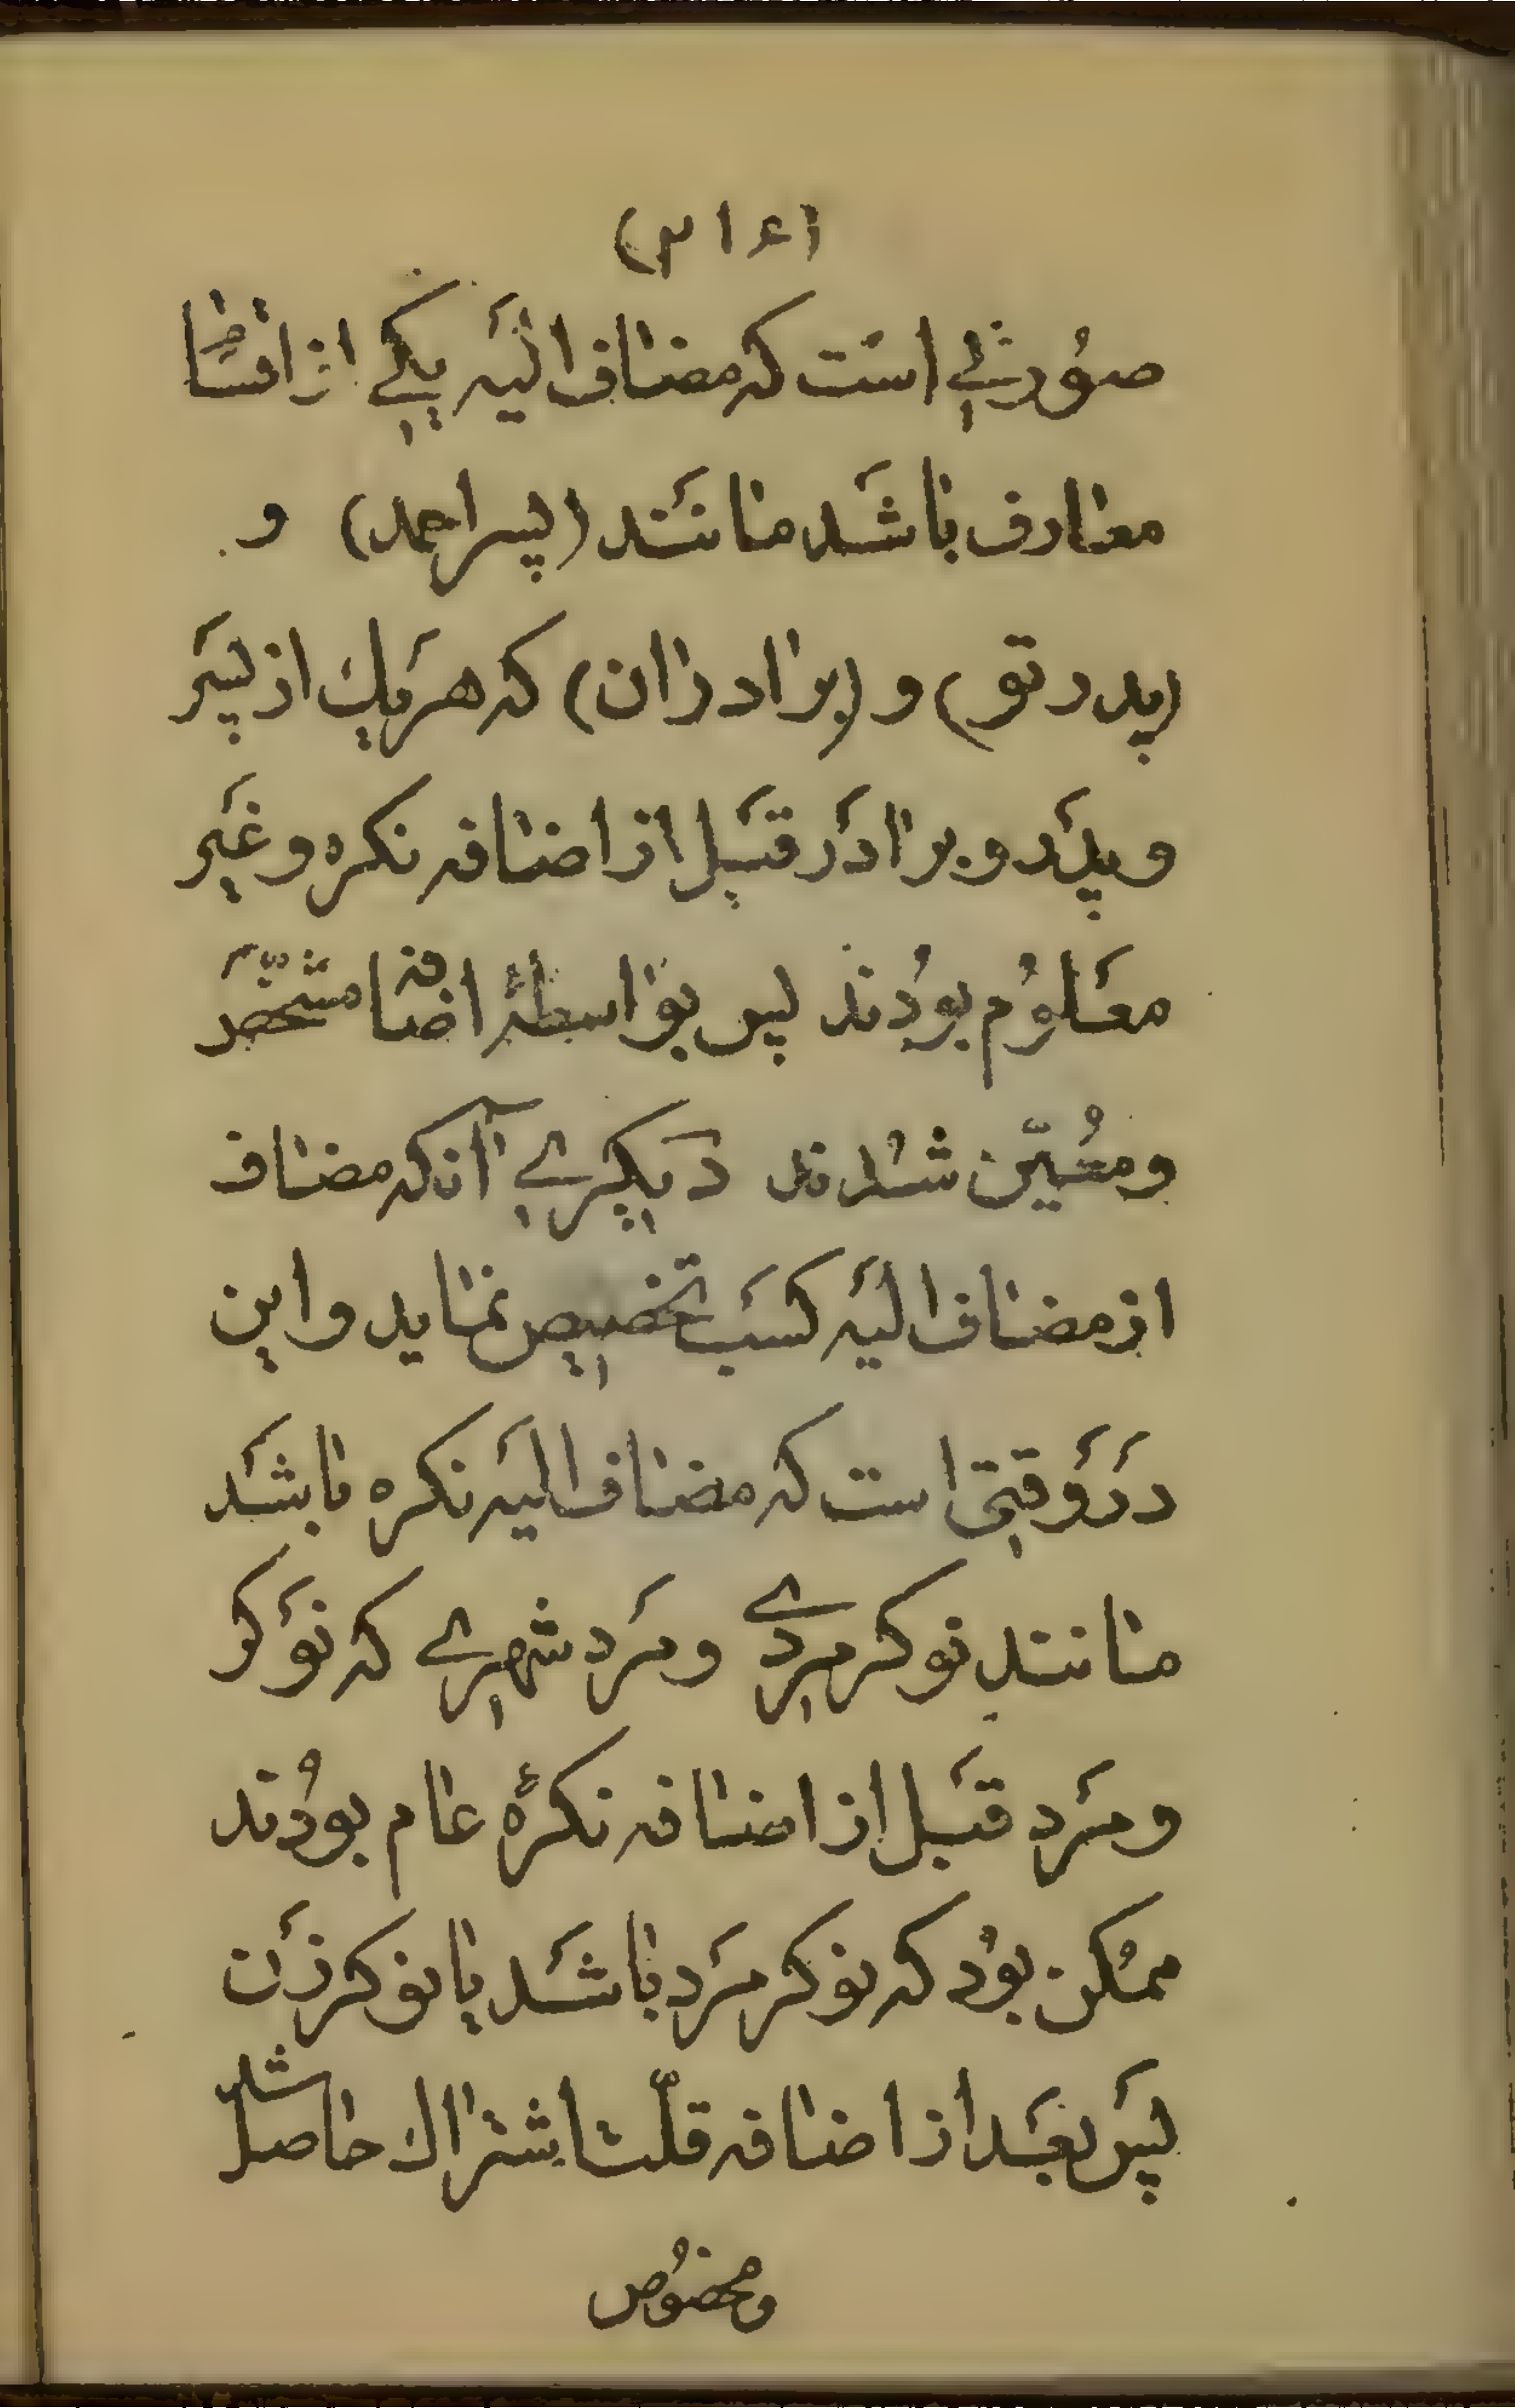 (۴۱۳)
صُورتی است که مضاف الیَه یکی از اقسام
معارف باشَد مانَند (پسر احمد) و
(پدر تو) و (برادران) که هَر یک از پسَر
و پدَر و برادَر قبَل از اضافه نکره و غَیر
معَلوُم بوُدند پس بواسطهٔ اضافه مشخّصَ
و معُیّن شُدند دیَگری آنکه مضاف
از مضاف الیَه کسَب تخصیص نماید و این
دَر وَقتی است که مضاف الیَه نکره باشَد
مانند نوکر مردی و مَرد شهری که نوَکر
و مَرد قبَل از اضافه نکرهٔ عام بوُدند
ممُکن بوُد که نوکر مَرد باشَد یا نوکر زَن
پسَ بعَد از اضافه قلّت اشتراک حاصل شد
ومخصوُص